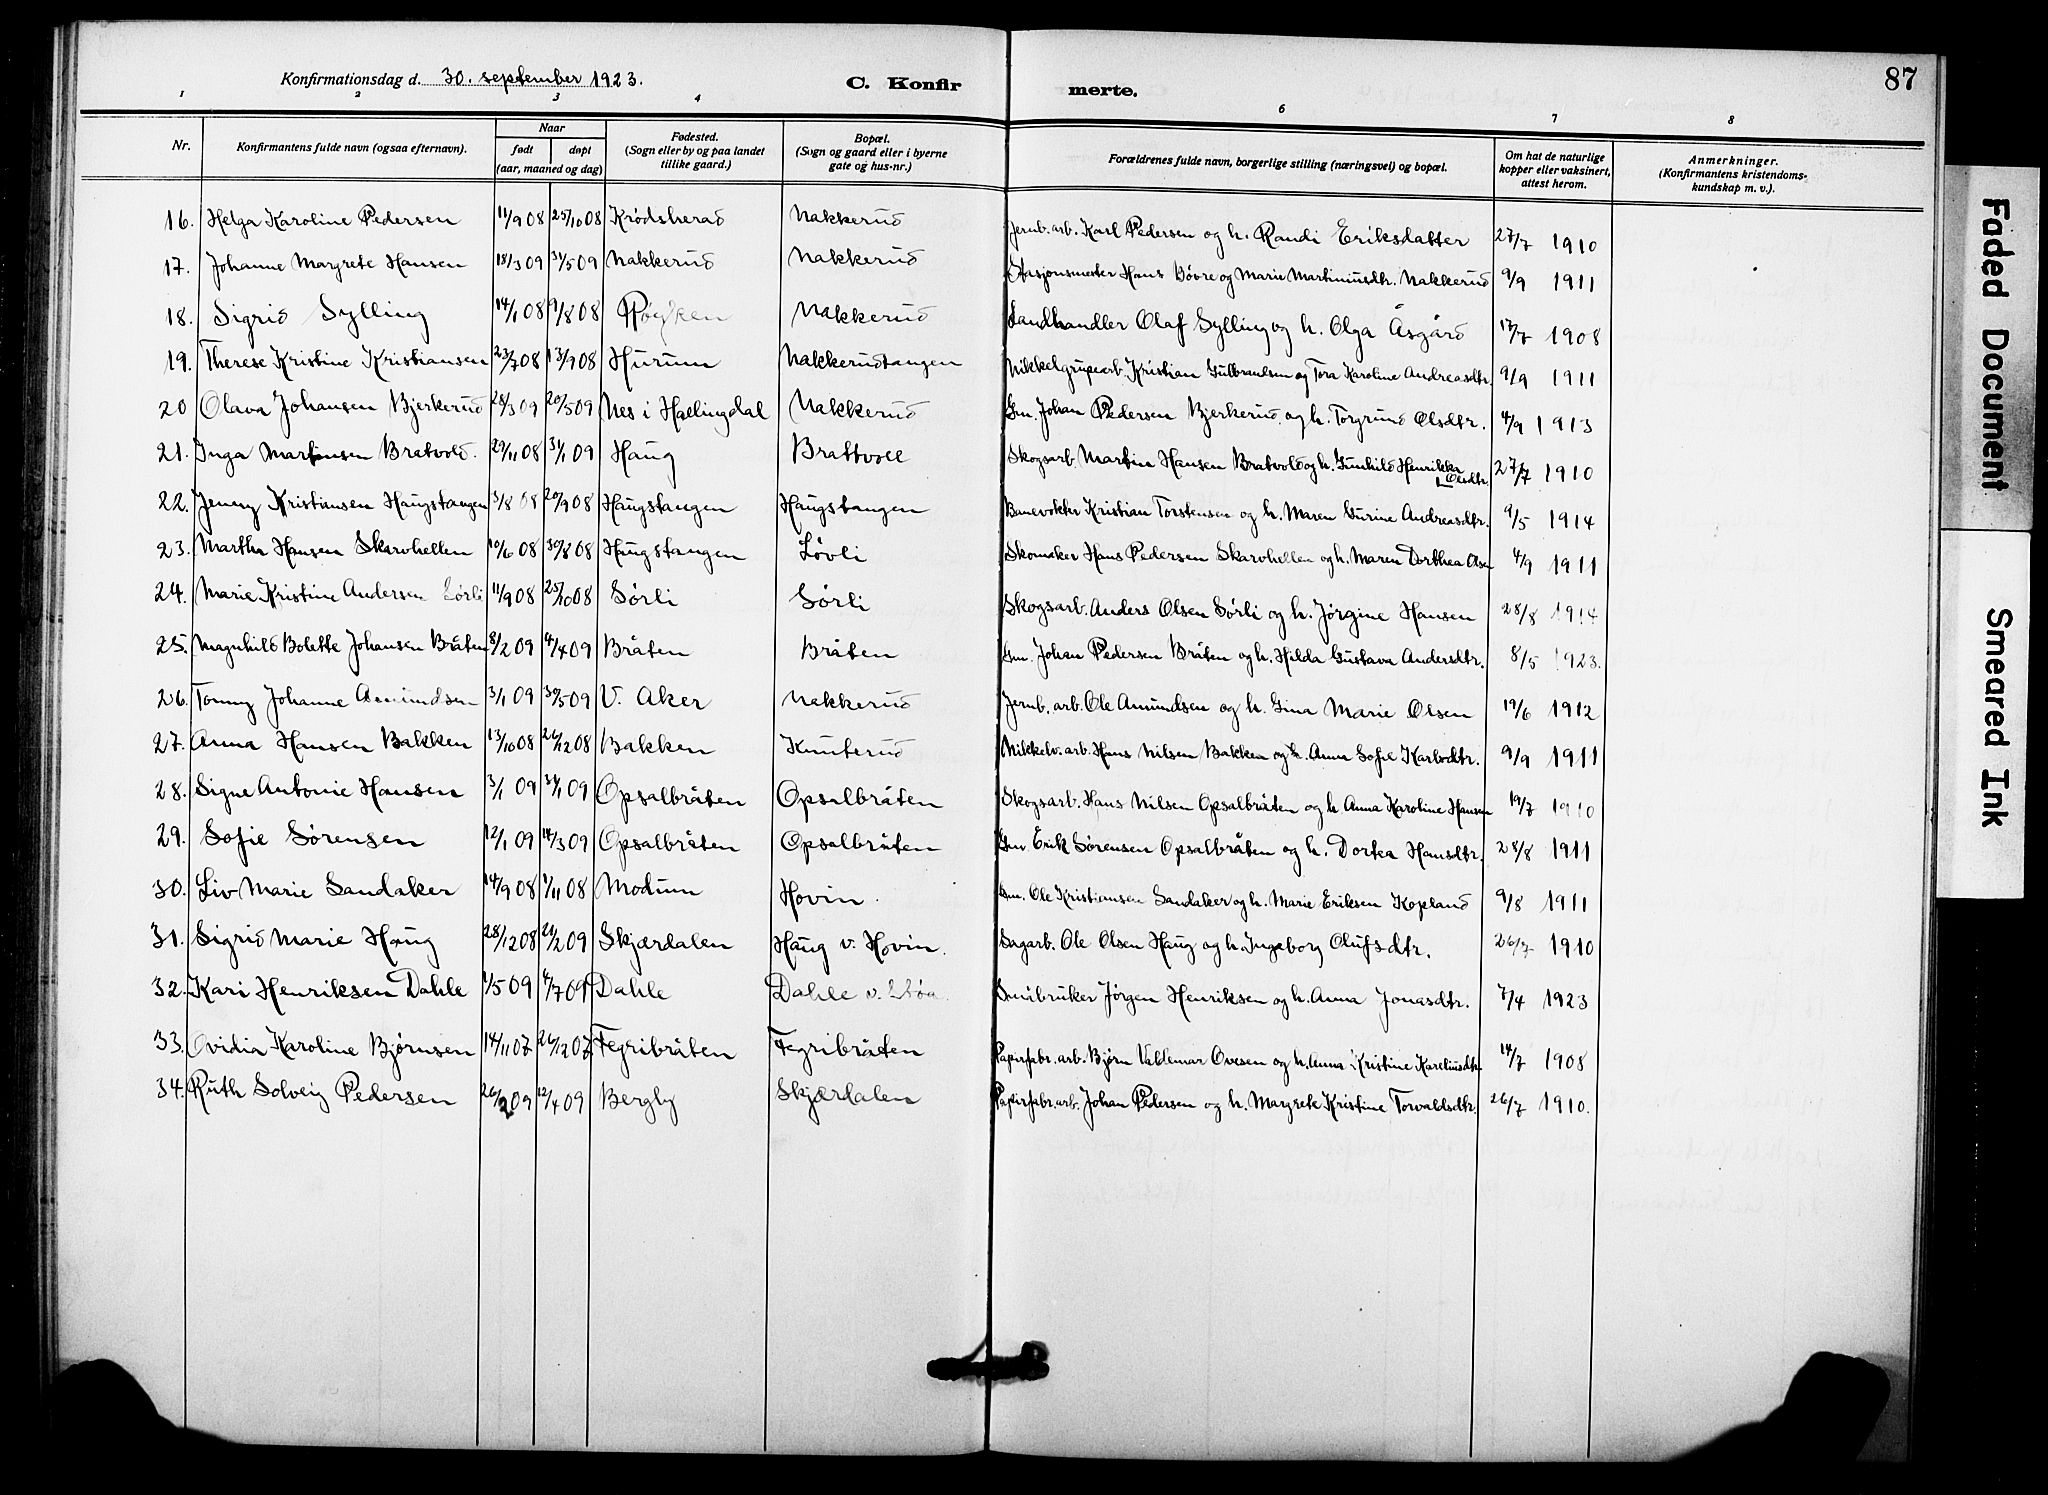 87
Konfirmationsdag d. 30. september 1923.
C. Konfir merte.
1 2 3 4 6 7 8
Nr. Konfirmantens fulde navn (ogsaa efternavn). Naar født døpt (aar, maaned og dag) Fødested. (Sogn eller by og paa landet tillike gaard.) Bopæl. (Sogn og gaard eller i byerne gate og hus-nr.) Forældrenes fulde navn, borgerlige stilling (næringsvei) og bopæl. Om hat de naturlige kopper eller vaksinert, attest herom. Anmerkninger. (Konfirmantens kristendoms-kundskap m. v.).
16. Helga Karoline Pedersen 11/9 08 25/10 08 Krødsherad Nakkerud Jernb. arb. Karl Pedersen og h. Randi Eriksdatter 27/7 1910
17. Johanne Margrete Hansen 18/3 09 31/5 09 Nakkerud Nakkerud Stasjonsmester Hans Døvre og Marie Martiniusdtr. Nakkerud 9/9 1911
18. Sigrid Sylling 14/1 08 9/8 08 Røyken Nakkerud Landhandler Olaf Sylling og h. Olga Åsgård 17/7 1908
19. Therese Kristine Kristiansen 23/7 08 13/9 08 Hurum Nakkerudtangen Nikkelgrupearb. Kristian Gulbrandsen og Tora Karoline Andreasdtr. 9/9 1911
20 Olava Johansen Bjerkerud 28/3 09 20/5 09 Nes i Hallingdal Nakkerud Gm. Johan Pedersen Bjerkerud og h. Torgrund Olsdtr. 4/9 1913
21. Inga Martinsen Bratvold. 29/11 08 31/1 09 Haug Brattvoll Skogsarb. Martin Hansen Bratvold og h. Gunhild Henrikka Olsdtr. 27/7 1910
22. Jenny Kristiansen Haugstangen 3/8 08 20/9 08 Haugstangen Haugstangen Banevokter Kristian Torstensen og h. Maren Gurine Andreasdtr. 9/5 1914
23. Martha Hansen Skarvhellen 10/6 08 30/8 08 Haugstangen Løvli Skomaker Hans Pedersen Skarvhellen og h. Maren Dorthea Olsen 4/9 1911
24. Marie Kristine Andersen Sørli 11/9 08 25/10 08 Sørli Sørli Skogsarb. Anders Olsen Sørli og h. Jørgine Hansen 28/8 1914
25. Magnhild Bolette Johansen Bråten 8/2 09 4/4 09 Bråten Bråten Gm. Johan Pedersen Bråten og h. Hilda Gustava Andersdtr. 8/5 1923.
26. Tommy Johanne Amundsen 3/1 09 30/5 09 V. Aker Nakkerud Jernb. arb. Ole Amundsen og h. Gina Marie Olsen 19/6 1912
27. Anna Hansen Bakken 13/10 08 26/12 08 Bakken Knuterud Nikkelv. arb. Hans Nilsen Bakken og h. Anna Sofie Karlsdtr. 9/9 1911
28. Signe Antonie Hansen 3/1 09 31/1 09 Opsalbråten Opsalbråten Skogsarb. Hans Nilsen Opsalbråten og h. Anna Karoline Hansen 19/7 1910
29. Sofie Sørensen 12/1 09 14/3 09 Opsalbråten Opsalbråten Gm. Erik Sørensen Opsalbråten og h. Dortea Hansdtr. 28/8 1911
30. Liv Marie Sandaker 14/9 08 1/11 08 Modum Hovin. Gm. Ole Kristiansen Sandaker og h. Marie Eriksen Kopland 9/8 1911
31. Sigrid Marie Haug 28/12 08 21/2 09 Skjærdalen Haug v. Hovin. Sagarb. Ole Olsen Haug og h. Ingeborg Olufsdtr. 26/7 1910
32. Kari Henriksen Dahle 1/5 09 4/7 09 Dahle Dahle v. Småbruker Jørgen Henriksen og h. Anna Jonasdtr. 7/4 1923
33. Ovidia Karoline Bjørnsen 14/11 07 26/12 07 Fegribråten Fegribråten Papirfabr. arb. Bjørn Valdemar Ovesen og h. Anna Kristine Kareliusdtr. 14/7 1908
34. Ruth Solveig Pedersen 26/2 09 12/4 09 Bergly Skjærdalen Papirfabr. arb. Johan Pedersen og h. Margrete Kristine Torvaldsdtr. 26/7 1910.
Faded Document
Smeared Ink